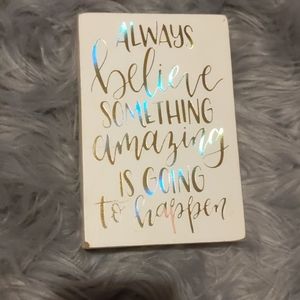 ALWAYS
believe
SOMETHING
amazing
IS GOING
to happen